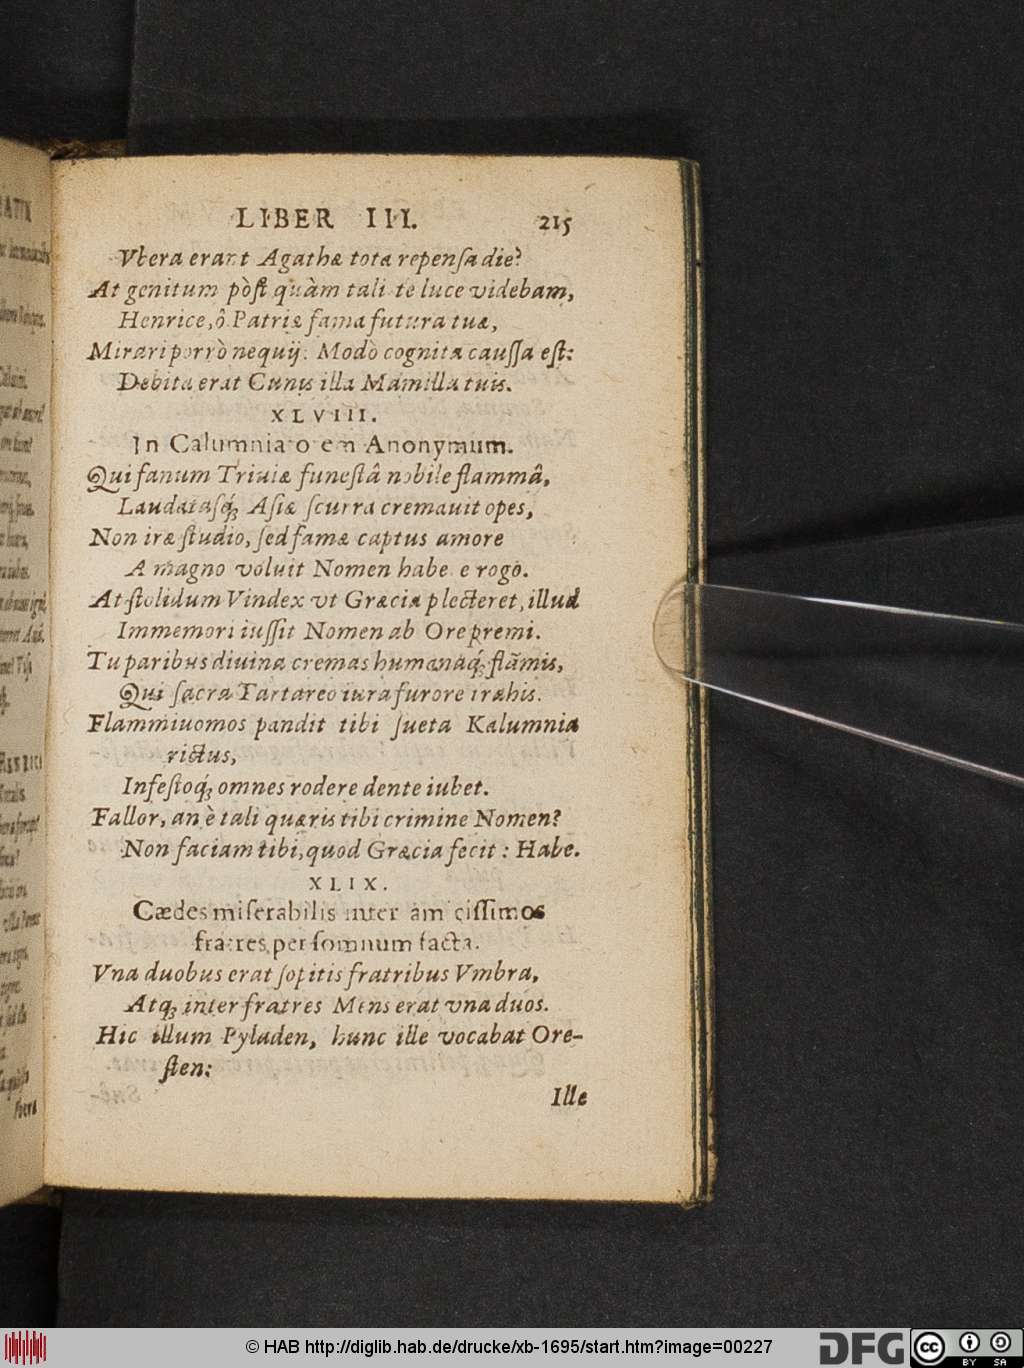 LIBER III. 215
Vbera erant Agathæ tota repensa die?
At genitum pòst quàm tali te luce videbam,
Henrice, ô Patriæ fama futura tuæ,
Mirari porrò nequij: Modò cognita caussa est:
Debita erat Cunis illa Mamilla tuis.
XLVIII.
In Calumniatorem Anonymum.
Qui fanum Triuiæ funestâ nobile flammâ,
Laudatasq́; Asiæ scurra cremauit opes,
Non iræ studio, sed famæ captus amore
A magno voluit Nomen habere rogo.
At stolidum Vindex vt Græcia plecteret, illud
Immemori iussit Nomen ab Ore premi.
Tu paribus diuina cremas humanaq́; flãmis,
Qui sacra Tartareo iura furore trahis.
Flammiuomos pandit tibi sueta Kalumnia
rictus,
Infestoq́; omnes rodere dente iubet.
Fallor, an è tali quæris tibi crimine Nomen?
Non faciam tibi, quod Græcia fecit: Habe.
XLIX.
Cædes miserabilis inter amicissimos
fratres, per somnum facta.
Vna duobus erat sopitis fratribus Vmbra,
Atq; inter fratres Mens erat vna duos.
Hic illum Pyladen, hunc ille vocabat Ore-
sten:
Ille
© HAB http://diglib.hab.de/drucke/xb-1695/start.htm?image=00227
DFG
cc BY SA